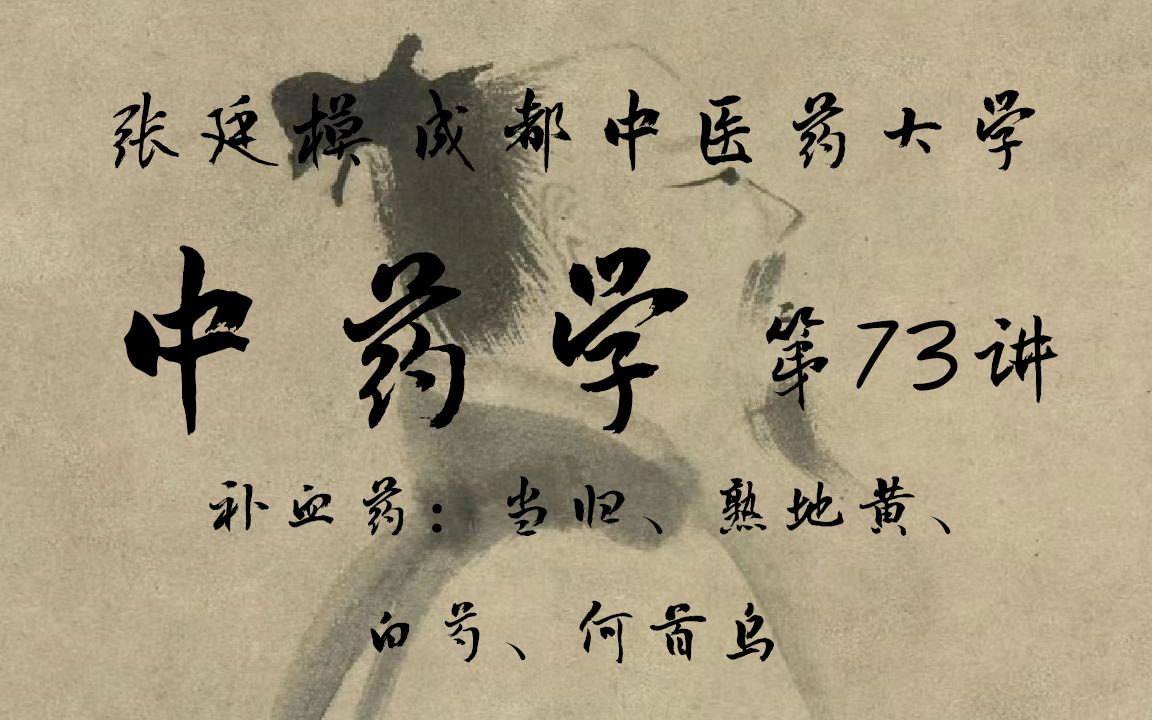 张廷模成都中医药大学
中药学 第73讲
补血药：当归、熟地黄、
白芍、何首乌